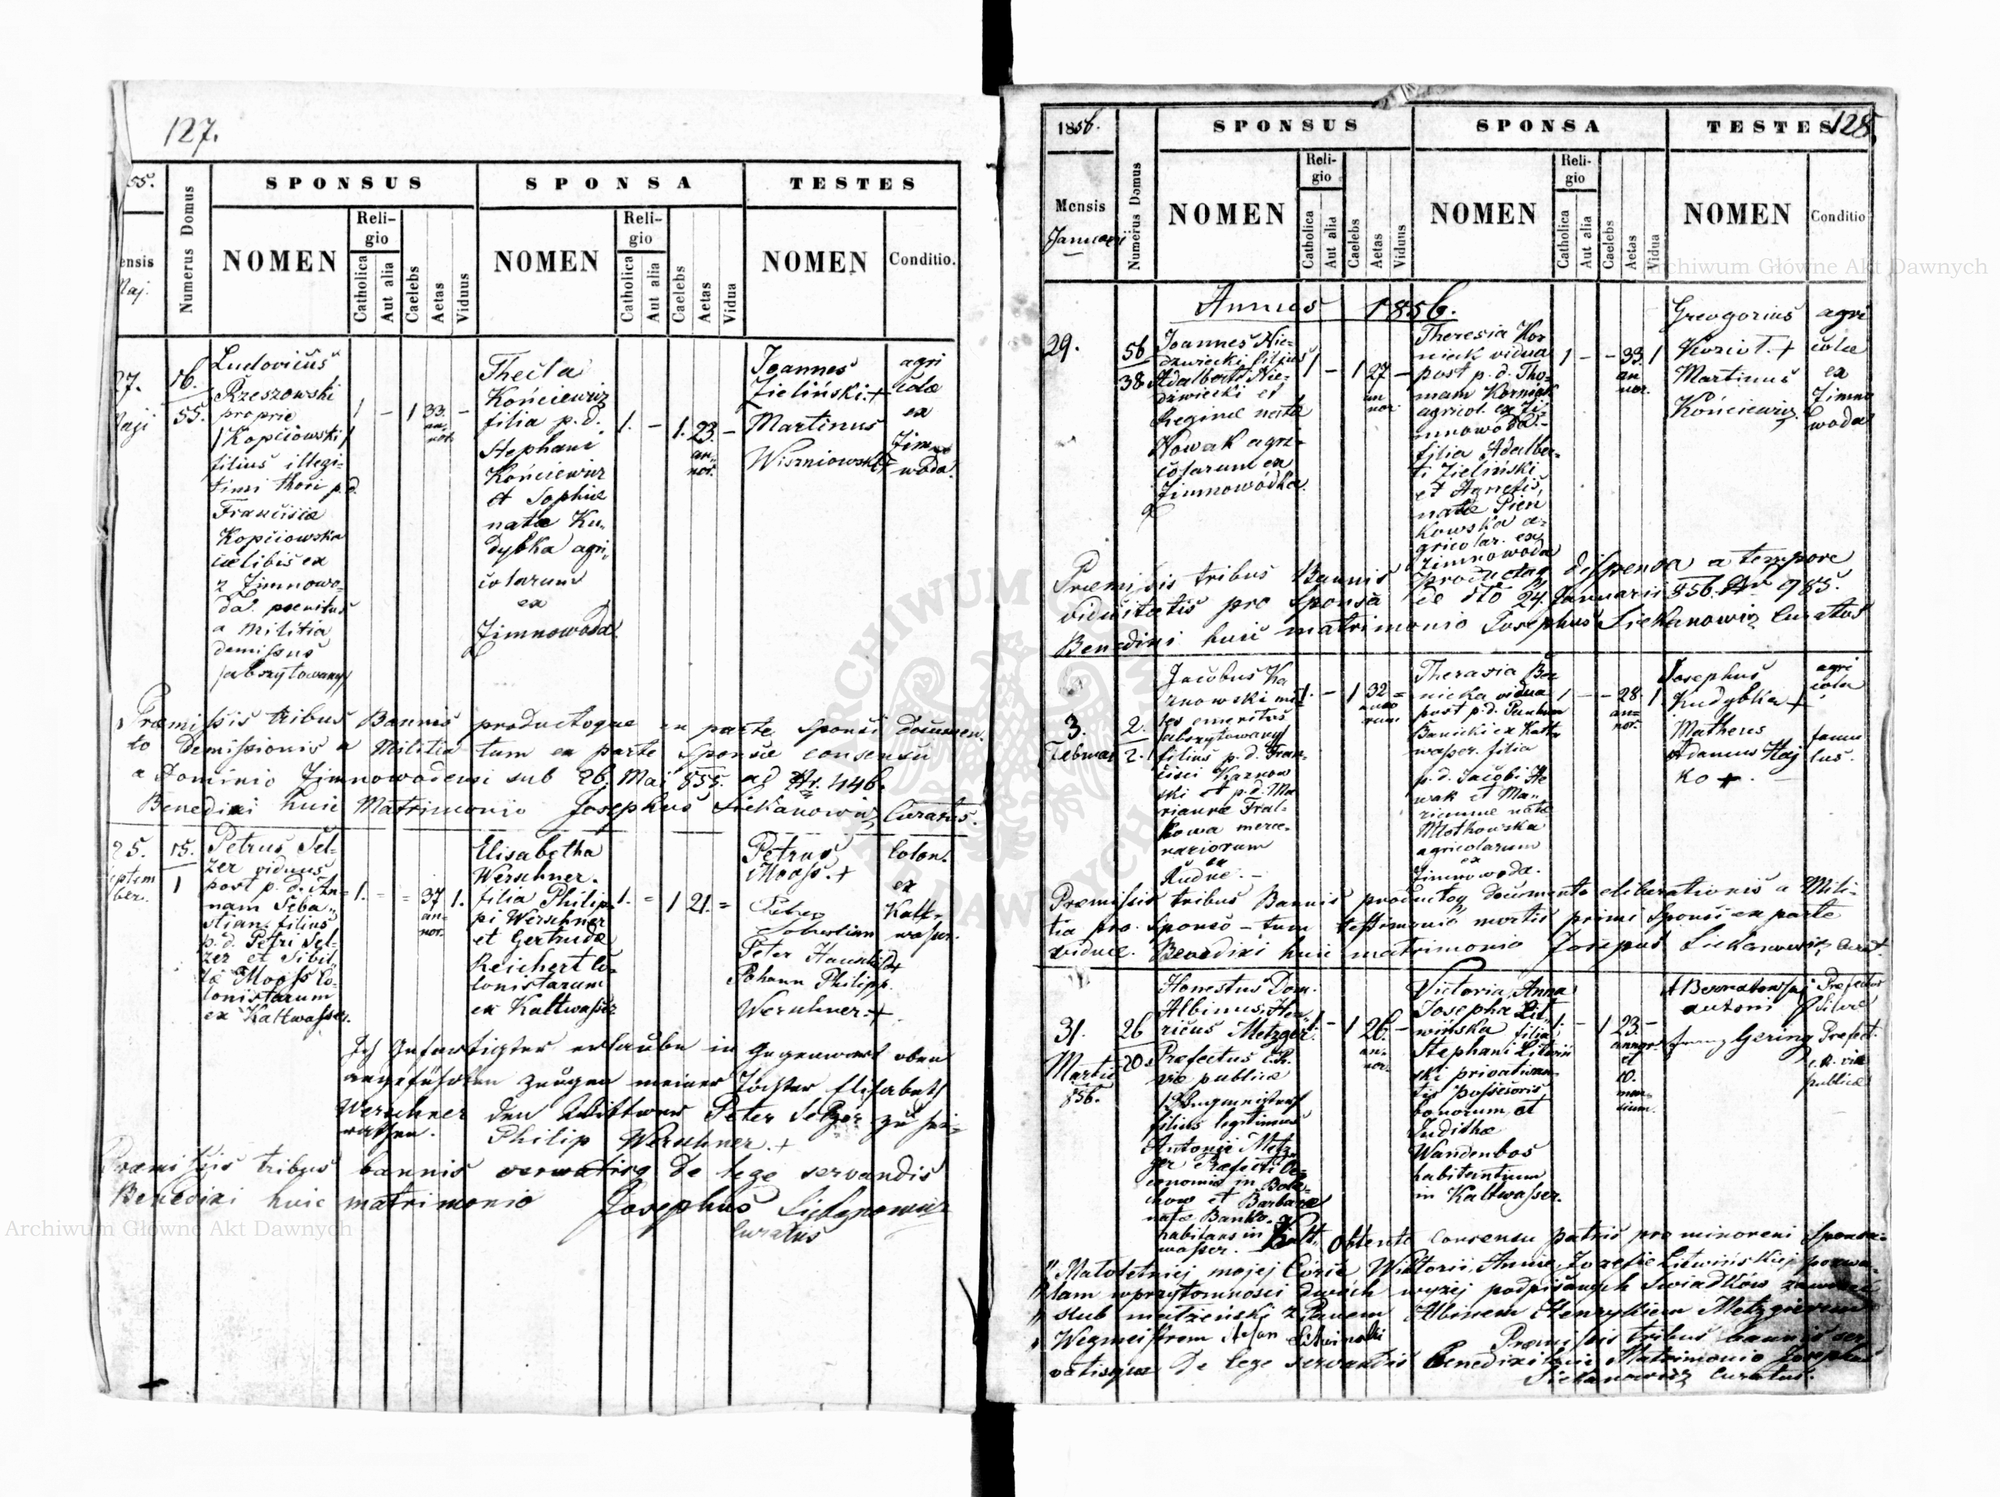 127.
55.
Numerus Domus
SPONSUS
SPONSA
TESTES
ensis
Maj.
NOMEN
Religio
Catholica
Aut alia
Caelebs
Aetas
Viduus
NOMEN
Religio
Catholica
Aut alia
Caelebs
Aetas
Vidua
NOMEN
Conditio.
27.
Maji
16.
55.
Ludovicus
Rzeszowski
proprie
/Kopciowski/
filius illegi-
timi thori p.d.
Francisca
Kopciowska
cælibis ex
Zimnowo-
da. penitus
a Militia
demissus
/abszytowany/
1 - 1 33. an- nor. -
Thecla
Kończewicz
filia p. d.
Stephani
Kończewicz
et Sophiæ
natæ Ku-
dybka agri-
colarum
ex
Zimnowoda.
1. - 1. 23. an- nor. -
Joannes
Zieliński. +
Martinus
Wiszniowski +
agri
colæ
ex
Zimno
woda.
Præmissis tribus Bannis productoque ex parte Sponsi documen-
to demissionis a Militia tum ex parte Sponsæ consensu
a Dominio Zimnowodensi sub 26. Maji 855. ad Nr. 446.
Benedixi huic Matrimonio Josephus Siekanowicz Curatus.
25.
eptem
ber.
15.
1
Petrus Sel-
zer viduus
post p. d. An-
nam Seba-
stian filius
p.d. Petri Sel-
zer et Sibil-
la Mooss Co-
lonistarum
ex Kaltwasser.
1. - - 37 an- nor. 1.
Elisabetha
Werschner.
filia Philip-
pi Werschner
et Gertrudæ
Reichert Co-
lonistarum
ex Kaltwasser
1. - 1 21. -
Petrus
Mooss. +
Peter
Sebastian
Peter
Johann Philipp.
Werschner +
Colon.
ex
Kalt-
wasser.
Ich Gefertigter erlaube in Gegenwart oben
angeführten Zeugen meiner Tochter Elisabeth
Werschner den Wittwer Peter Selzer zu hei-
rathen. Philip Werschner. +
Præmissis tribus bannis de lege servandis
Benedixi huic matrimonio Josephus Siekanowicz
Curatus
1856.
SPONSUS
SPONSA
TESTES
128.
Mensis
Januari
Numerus Domus
NOMEN
Religio
Catholica
Aut alia
Caelebs
Aetas
Viduus
NOMEN
Religio
Catholica
Aut alia
Caelebs
Aetas
Vidua
NOMEN
Conditio
Annus 1856.
29.
56
38
Joannes Nie-
dzwiecki filius
Adalberti Nie-
dzwiecki et
Reginæ natæ
Nowak agri-
colarum ex
Zimnowódka.
1 - 1 27 an nor -
Theresia Kor
niek vidua
post p. d. Tho-
mam Korniek
agricol. ex Zi-
mnowoda. -
filia Adalber-
ti Zieliński
et Agnetis,
natæ Pień
kowska a-
gricolar. ex
Zimnowoda
1 - - 33. an- nor. 1
Gregorius
Kozioł. +
Martinus
Kończewicz.
agri
colæ
ex
Zimno
woda
Præmissis tribus Bannis productaq dispensa a tempore
viduitatis pro Sponsa de dto 24. Januarii 856. Nr 985.
Benedixi huic matrimonio Josephus Siekanowicz Curatus
3.
Februar
2.
2.
Jacobus Ka
rnowski mi-
les emeritus
/abszytowany/
filius p. d. Fran-
cisci Karnow
ski et p. d. Ma-
riannæ Fral-
kowa merce-
nariorum
ex
Rudne. -
1. - 1 32 anno rum -
Therasia Ba-
nicka vidua
post p.d.
Banicki ex Kalt
wasser. filia
p. d. Jacobi No
wak et Ma-
riannæ natæ
Młotkowska
agricolarum
ex
Zimnowoda.
1 - - 28. an- nor. 1
Josephus
Kudybka +
Matheus
Adamus Haj
ko +
agri
cola
famu
lus.
Præmissis tribus Bannis productoq documento eliberationis a Mili-
tia pro Sponso - tum testimonio mortis primi Sponsi ex parte
viduæ. Benedixi huic matrimonio Josephus Siekanowicz, Curat.
31.
Martii
856.
26
20.
Honestus Dom.
Albinus, Hen-
ricus Metzger.
Præfectus C.R.
viæ publicæ
filius legitimus
Antonii Metz-
ger Præfecti Oe-
conomiæ in Bole-
chow et Barbaræ
natæ Banko.
habitans in Kalt
wasser. -
1 - 1 26. an- nor. -
Victoria, Anna
Josepha Lit-
wińska filia
Stephani Litwiń
ski privatizan-
tis possessoris
bonorum et
Judithæ
Wandenbos
habitantium
in Kaltwasser.
1. - 1 23. annor. et 10. men- sium. -
Bernatowski
Antoni
Franz Gering
Præfectus
Silvæ
Præfect.
c. R. viæ
publicæ
obtento consensu patris pro minoreni Sponsa.
"Małoletniej mojej Córce Wiktorii, Annie, Jozefie Litwińskiej pozwa-
"lam w przytomności dwóch wyżej podpisanych Swiadków zawrzeć
"slub małżeński z Panem Albinem Henrykiem Metzgerem
"Wegmeistrem Stefan Litwinski Præmissis tribus bannis ser-
vatisque de lege servandis Benedixi huic Matrimonio Josephus
Siekanowicz Curatus.
ARCHIWUM GŁÓWNE AKT DAWNYCH
Archiwum Główne Akt Dawnych
Archiwum Główne Akt Dawnych